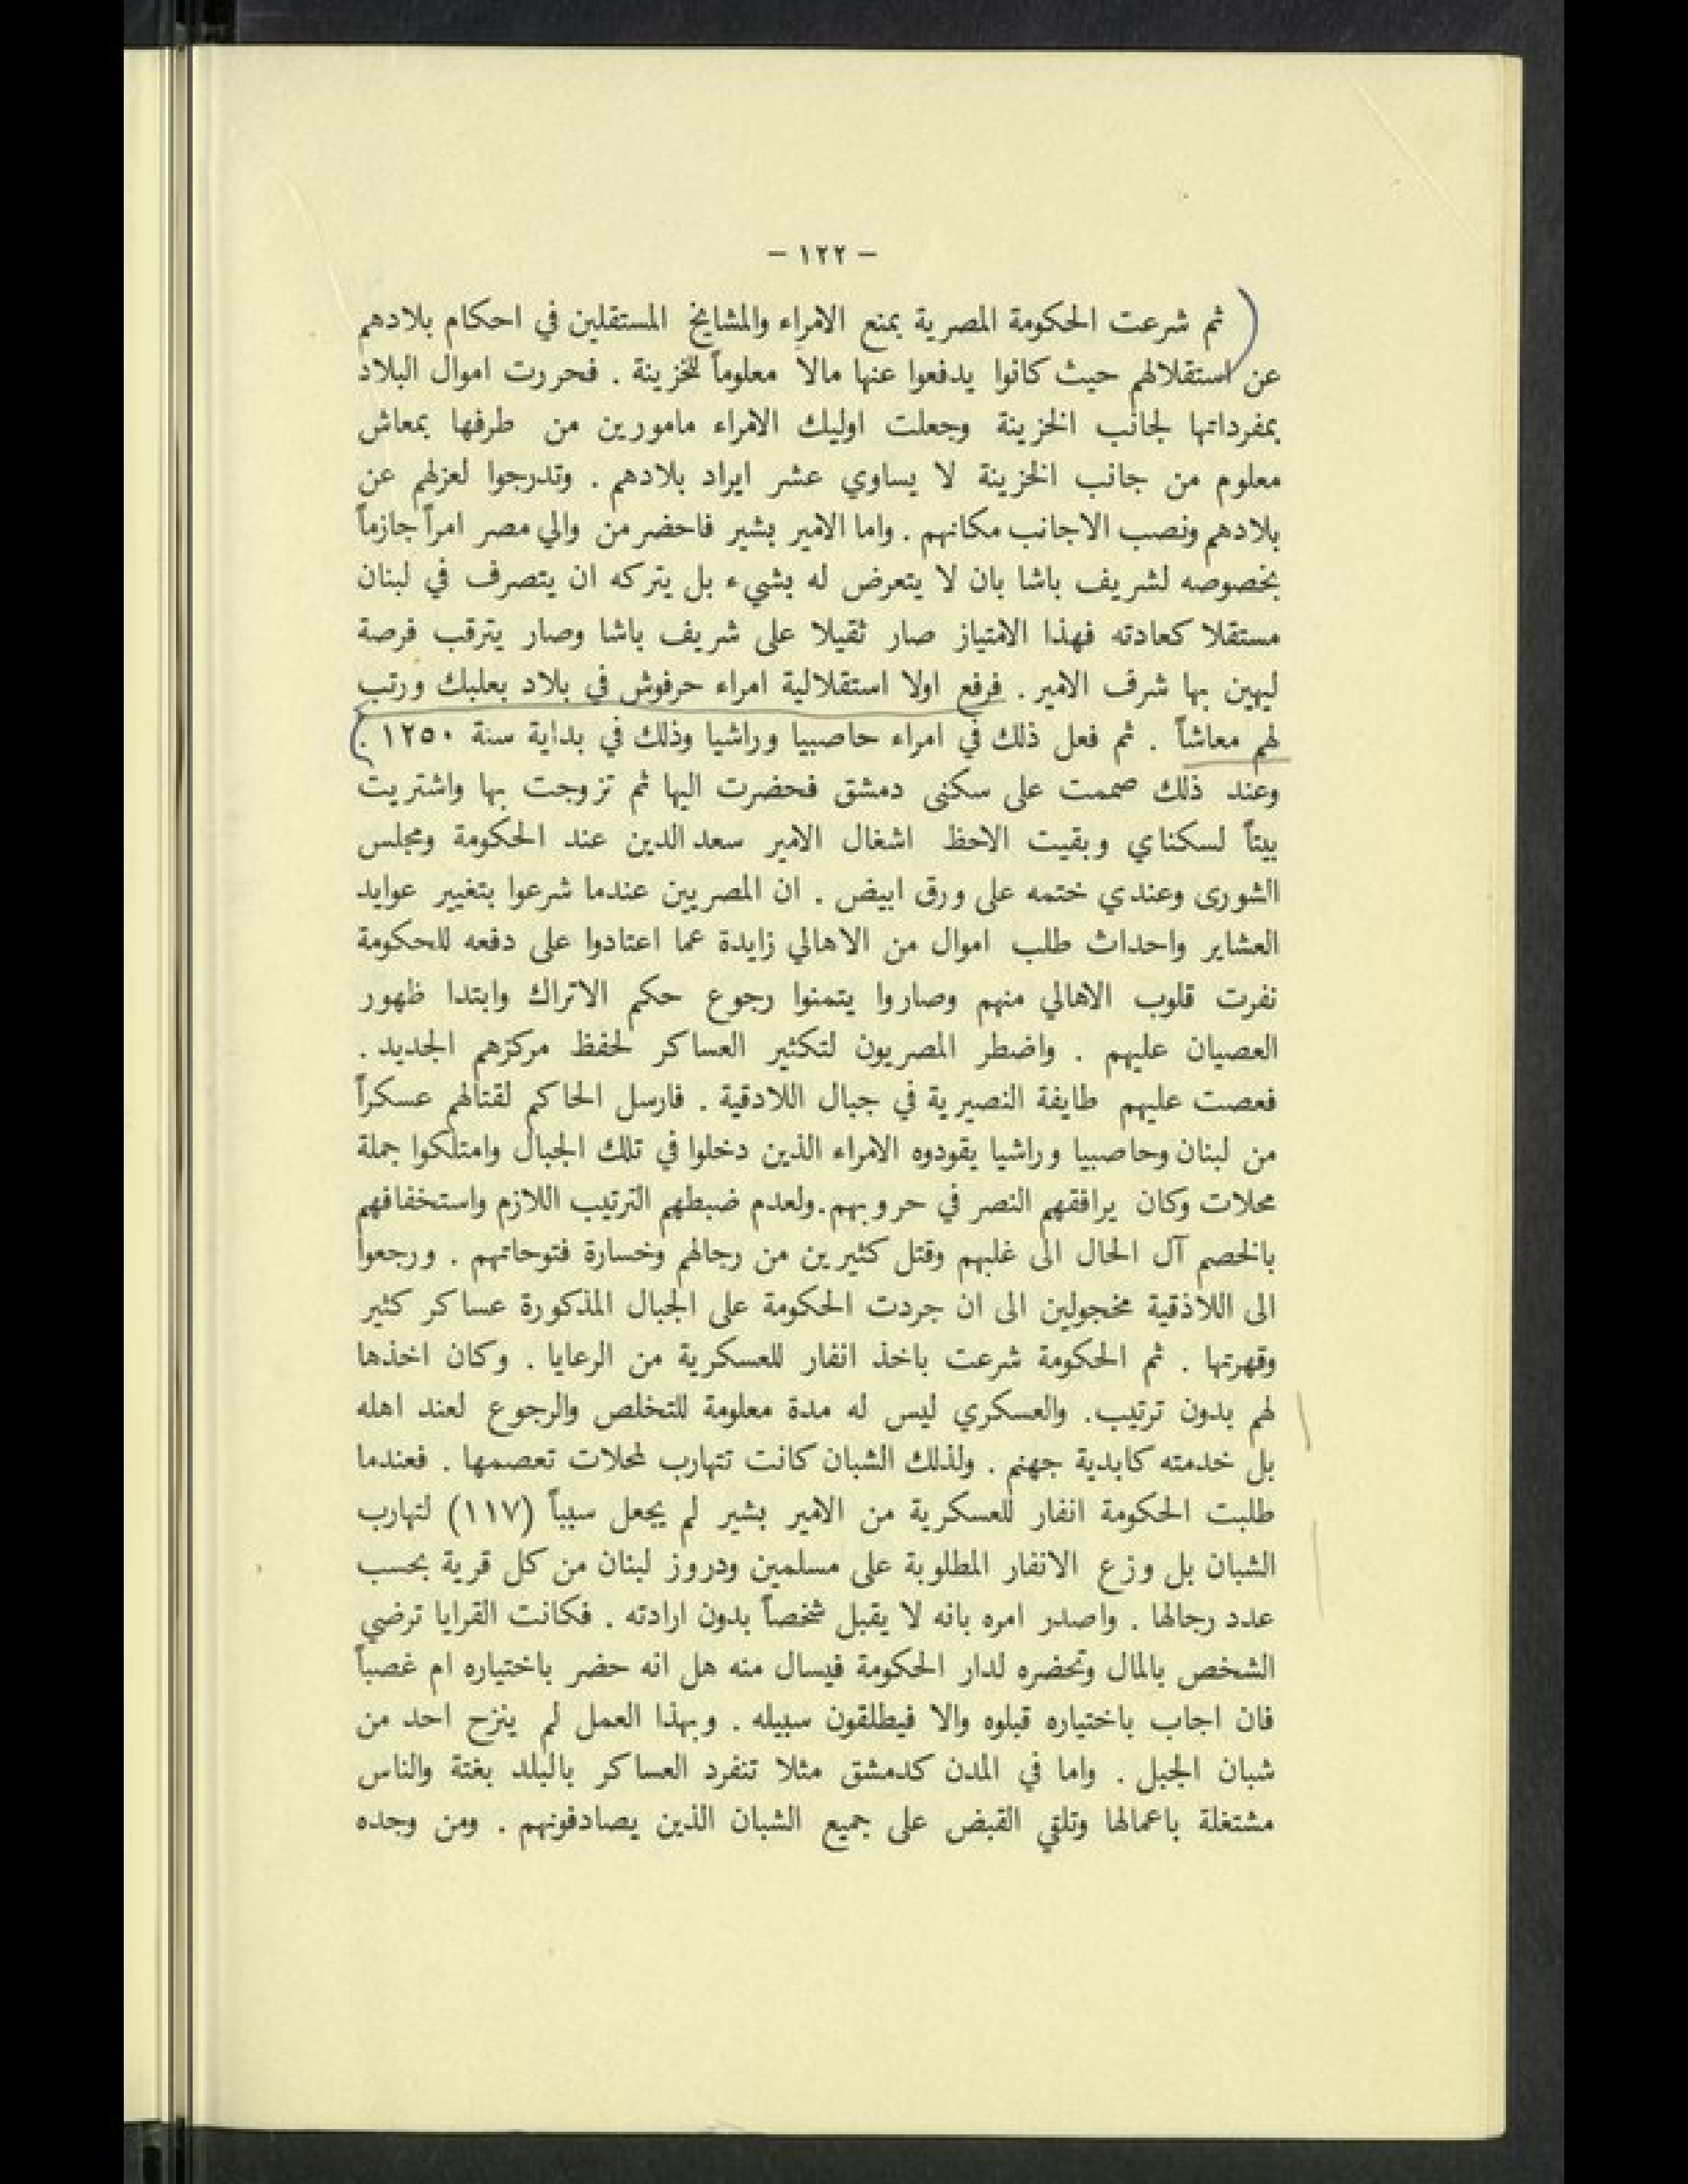 – ١٢٢ –
ثم شرعت الحكومة المصرية بمنع الامراء والمشايخ المستقلين في احكام بلادهم
عن استقلالهم حيث كانوا يدفعوا عنها مالاً معلوماً للخزينة . فحررت اموال البلاد
بمفرداتها لجانب الخزينة وجعلت اوليك الامراء مامورين من طرفها بمعاش
معلوم من جانب الخزينة لا يساوي عشر ايراد بلادهم . وتدرجوا لعزلهم عن
بلادهم ونصب الاجانب مكانهم . واما الامير بشير فاحضر من والي مصر امراً جازماً
بخصوصه لشريف باشا بان لا يتعرض له بشيء بل يتركه ان يتصرف في لبنان
مستقلا كعادته فهذا الامتياز صار ثقيلا على شريف باشا وصار يترقب فرصة
ليهين بها شرف الامير . فرفع اولا استقلالية امراء حرفوش في بلاد بعلبك ورتب
لهم معاشاً . ثم فعل ذلك في امراء حاصبيا وراشيا وذلك في بداية سنة ١٢٥٠ .
وعند ذلك صممت على سكنى دمشق فحضرت اليها ثم تزوجت بها واشتريت
بيتاً لسكناي وبقيت الاحظ اشغال الامير سعد الدين عند الحكومة ومجلس
الشورى وعندي ختمه على ورق ابيض . ان المصريين عندما شرعوا بتغيير عوايد
العشاير واحداث طلب اموال من الاهالي زايدة عما اعتادوا على دفعه للحكومة
نفرت قلوب الاهالي منهم وصاروا يتمنوا رجوع حكم الاتراك وابتدا ظهور
العصيان عليهم . واضطر المصريون لتكثير العساكر لحفظ مركزهم الجديد .
فعصت عليهم طايفة النصيرية في جبال اللادقية . فارسل الحاكم لقتالهم عسكراً
من لبنان وحاصبيا وراشيا يقودوه الامراء الذين دخلوا في تلك الجبال وامتلكوا جملة
محلات وكان يرافقهم النصر في حروبهم . ولعدم ضبطهم الترتيب اللازم واستخفافهم
بالخصم آل الحال الى غلبهم وقتل كثيرين من رجالهم وخسارة فتوحاتهم . ورجعوا
الى اللاذقية مخجولين الى ان جردت الحكومة على الجبال المذكورة عساكر كثير
وقهرتها . ثم الحكومة شرعت باخذ انفار للعسكرية من الرعايا . وكان اخذها
لهم بدون ترتيب. والعسكري ليس له مدة معلومة للتخلص والرجوع لعند اهله
بل خدمته كابدية جهنم . ولذلك الشبان كانت تتهارب لمحلات تعصمها . فعندما
طلبت الحكومة انفار للعسكرية من الامير بشير لم يجعل سبباً (١١٧) لتهارب
الشبان بل وزع الانفار المطلوبة على مسلمين ودروز لبنان من كل قرية بحسب
عدد رجالها . واصدر امره بانه لا يقبل شخصاً بدون ارادته . فكانت القرايا ترضي
الشخص بالمال وتحضره لدار الحكومة فيسال منه هل انه حضر باختياره ام غصباً
فان اجاب باختياره قبلوه والا فيطلقون سبيله . وبهذا العمل لم ينزح احد من
شبان الجبل . واما في المدن كدمشق مثلا تنفرد العساكر بالبلد بغتة والناس
مشتغلة باعمالها وتلقي القبض على جميع الشبان الذين يصادفونهم . ومن وجده